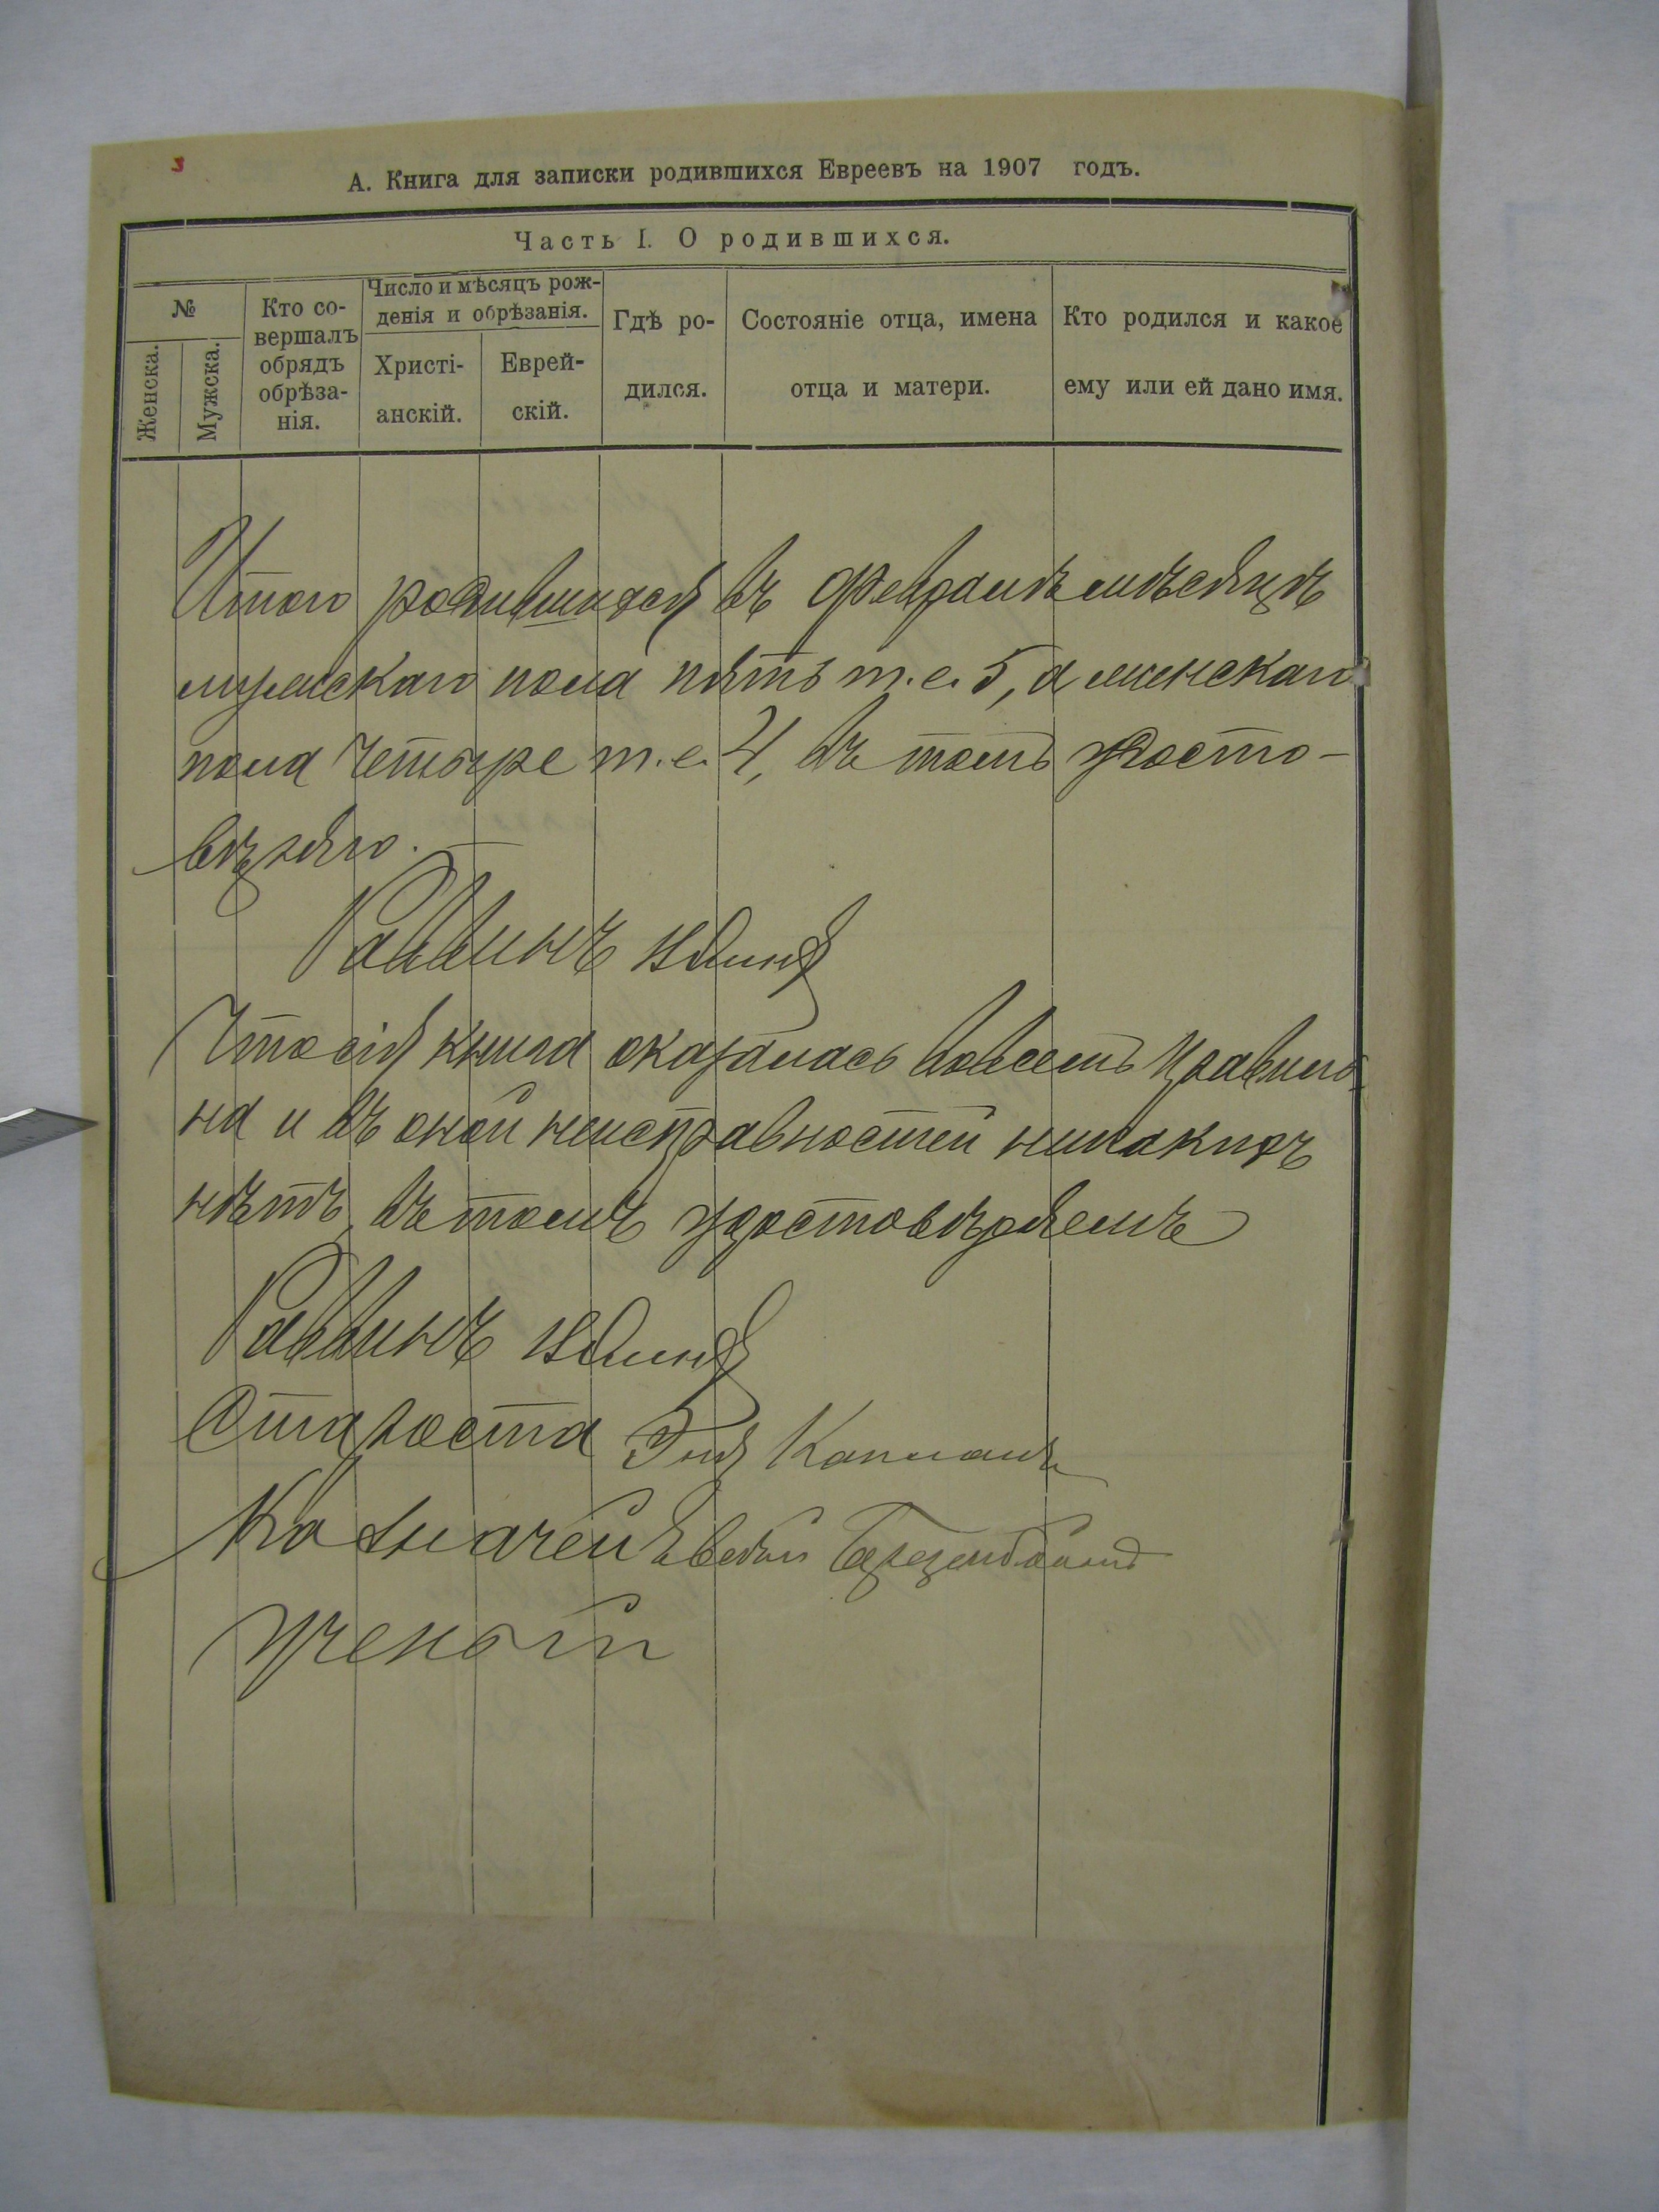 3
А. Книга для записки родившихся Евреевъ на 1907 годъ.
Часть I. О родившихся.
№
Женска.
Мужска.
Кто со-
вершалъ
обрядъ
обрѣза-
нія.
Число и мѣсяцъ рож-
денія и обрѣзанія.
Христі-
анскій.
Еврей-
скій.
Гдѣ ро-
дился.
Состояніе отца, имена
отца и матери.
Кто родился и какое
ему или ей дано имя.
Итого родившихся въ Февралѣ мѣсяцѣ
мужскаго пола пять т.е. 5, а женскаго
пола четыре т.е. 4, въ томъ удосто-
вѣряю.
Раввинъ
Что сія книга оказалась вовсемъ правиль
на и въ оной неисправностей никакихъ
нѣтъ, въ томъ удостовѣряемъ
Раввинъ
Староста Капланъ
Казначей
Ученый